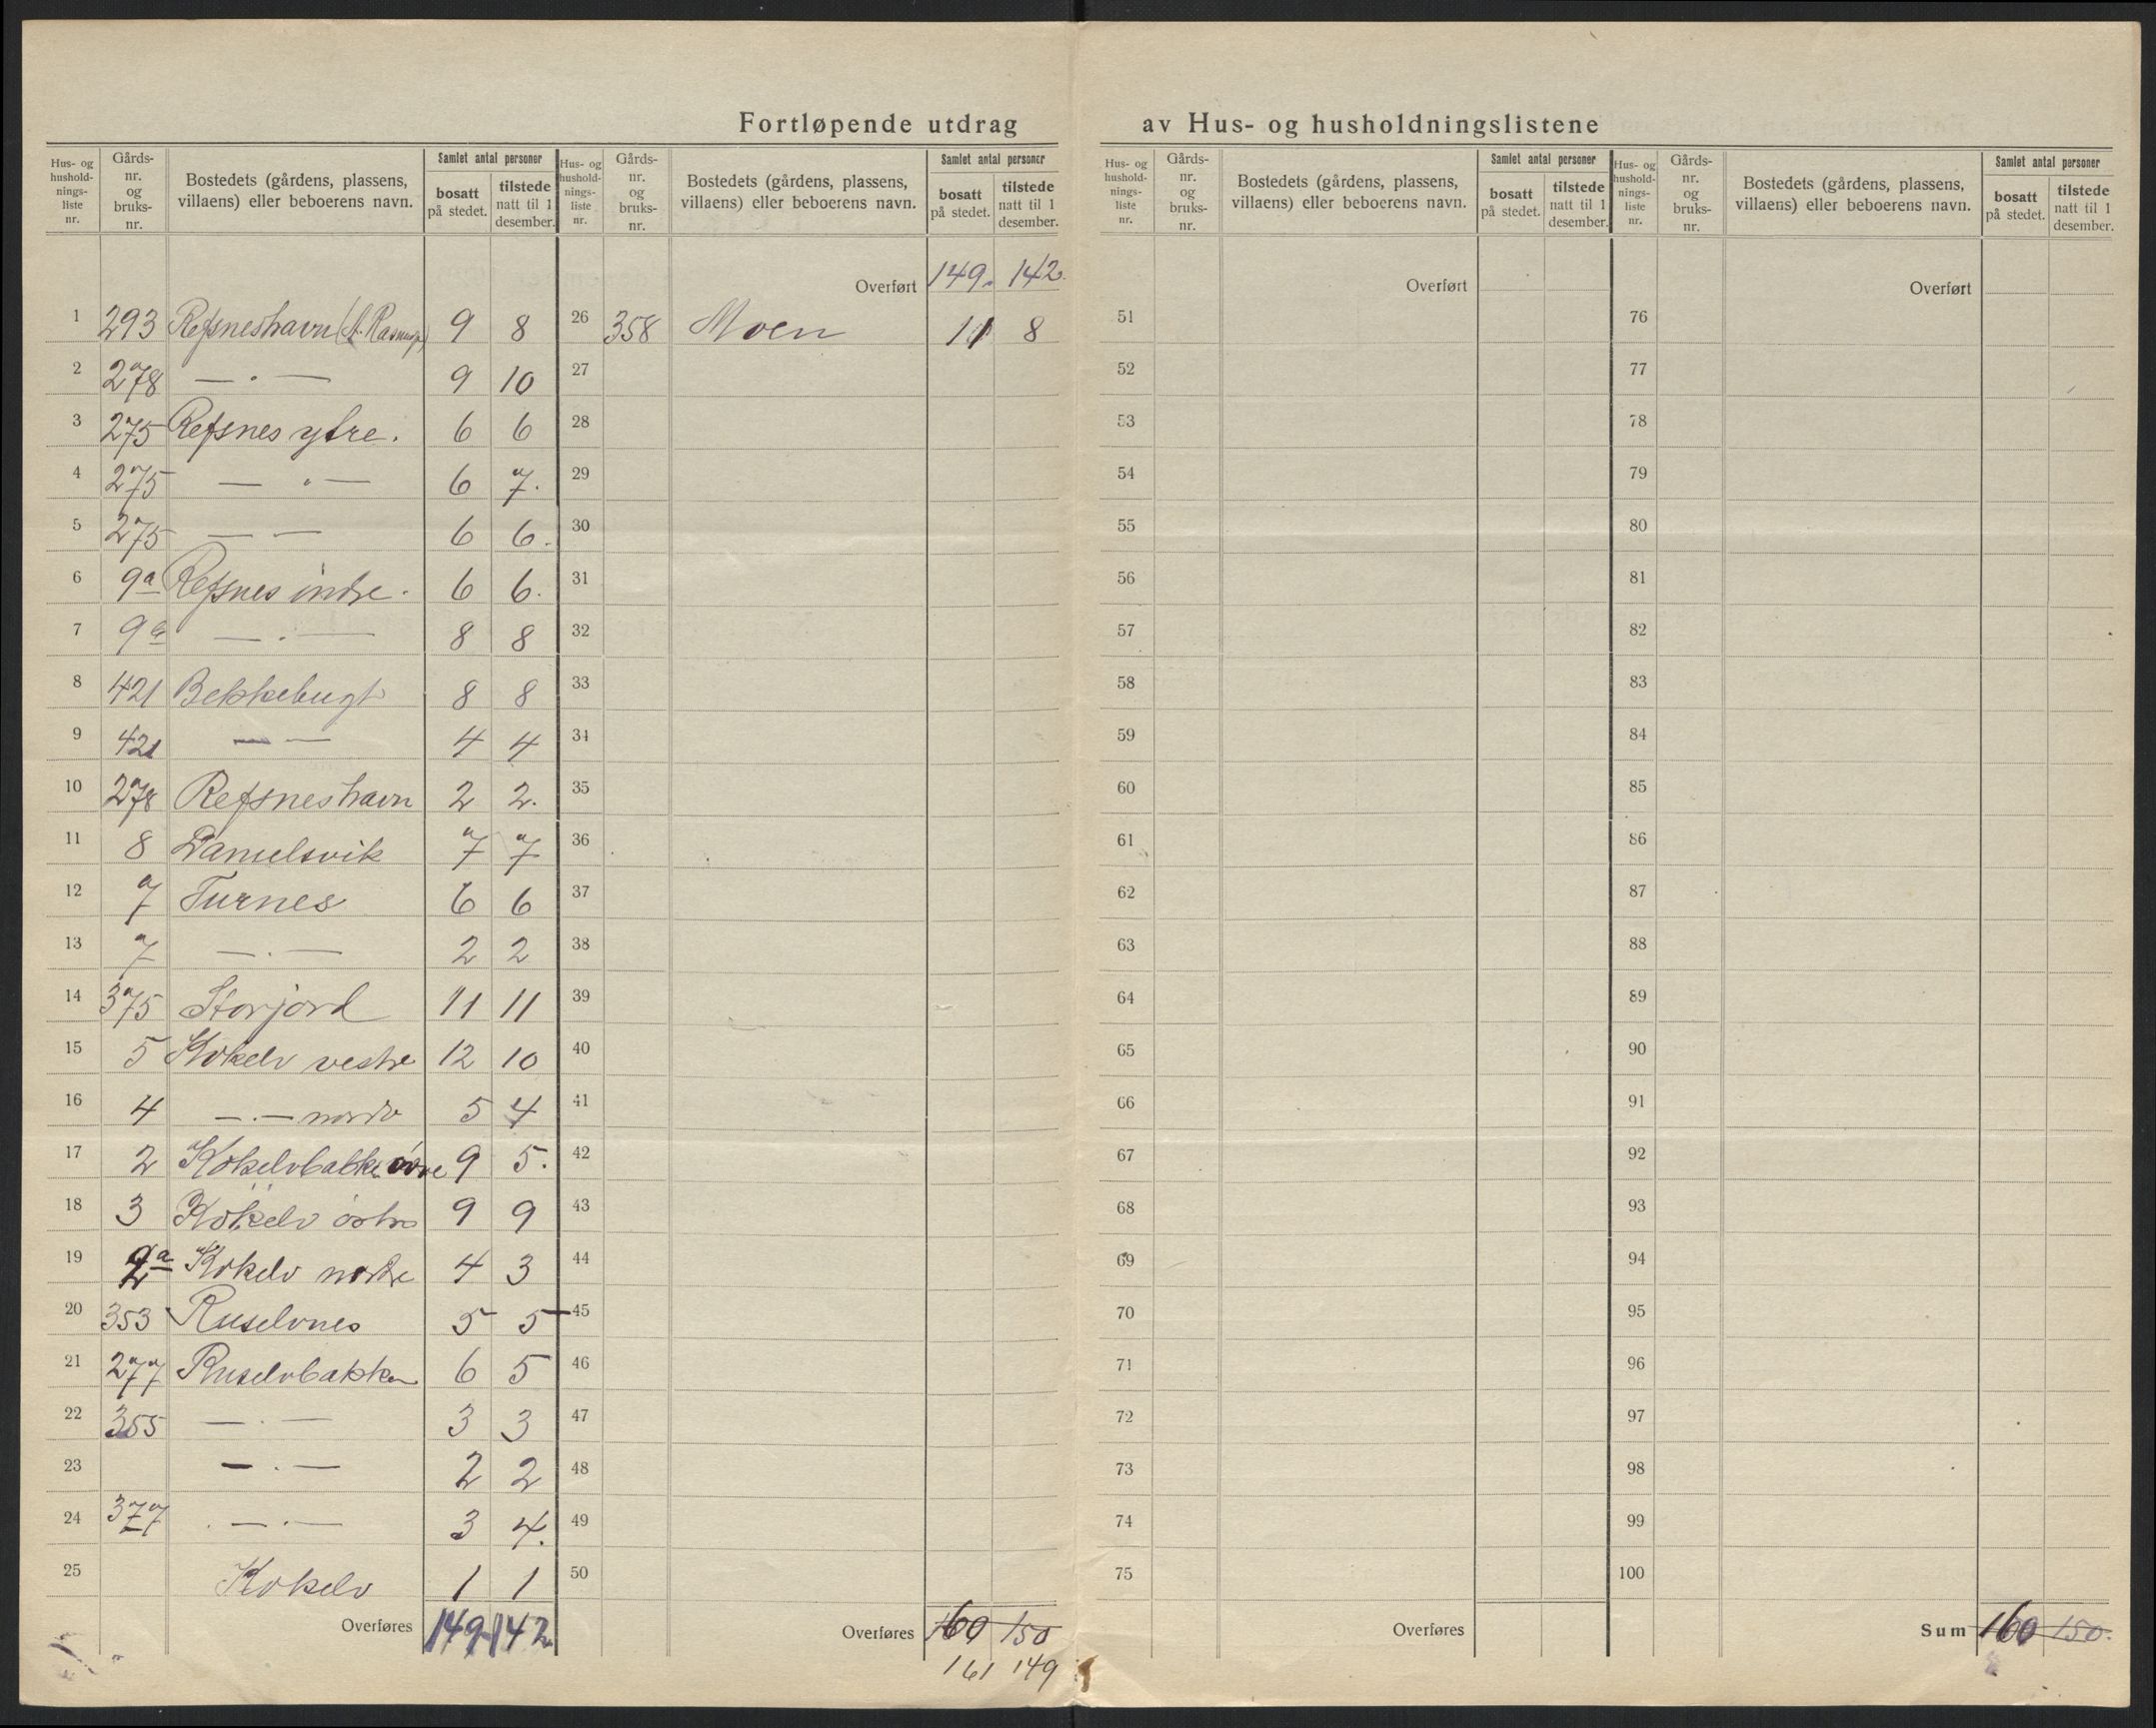 Fortløpende utdrag av Hus- og husholdningslistene
Hus- og hushold- nings- liste nr. | Gårds- nr. og bruks- nr. | Bostedets (gårdens, plassens, villaens) eller beboerens navn. | Samlet antal personer | bosatt på stedet. | tilstede natt til 1 desember.
1 293 Refsneshavn 9 8
2 278 — . — 9 10
3 275 Refsnes ytre. 6 6
4 275 — " — 6 7.
5 275 — — 6 6.
6 9a Refsnes indre. 6 6.
7 9 — . — 8 8
8 421 Bekkebugt 8 8
9 421 — — 4 4
10 278 Refsneshavn 2 2.
11 8 Danielsvik 7 7
12 7 Turnes 6 6
13 7 — . — 2 2
14 375 Storjord 11 11
15 5 Kokelv vestre 12 10
16 4 — . — nordr 5 4
17 2 Kokelvbakke øvre 9 5.
18 3 Kokelv østre 9 9
19 2a Kokelv nordre 4 3
20 353 Ruselvnes 5 5
21 277 Ruselvbakken 6 5
22 355 — . — 3 3
23 — . — 2 2
24 377 . — . — 3 4.
25 Kokelv 1 1
Overføres 149 142
Hus- og hushold- nings- liste nr. | Gårds- nr. og bruks- nr. | Bostedets (gårdens, plassens, villaens) eller beboerens navn. | Samlet antal personer | bosatt på stedet. | tilstede natt til 1 desember.
Overført 149. 142.
26 358 Moen 11 8
27
28
29
30
31
32
33
34
35
36
37
38
39
40
41
42
43
44
45
46
47
48
49
50
Overføres 160 150
161 149
Hus- og hushold- nings- liste nr. | Gårds- nr. og bruks- nr. | Bostedets (gårdens, plassens, villaens) eller beboerens navn. | Samlet antal personer | bosatt på stedet. | tilstede natt til 1 desember.
Overført
51
52
53
54
55
56
57
58
59
60
61
62
63
64
65
66
67
68
69
70
71
72
73
74
75
Overføres
Hus- og hushold- nings- liste nr. | Gårds- nr. og bruks- nr. | Bostedets (gårdens, plassens, villaens) eller beboerens navn. | Samlet antal personer | bosatt på stedet. | tilstede natt til 1 desember.
Overført
76
77
78
79
80
81
82
83
84
85
86
87
88
89
90
91
92
93
94
95
96
97
98
99
100
Sum 160 150.